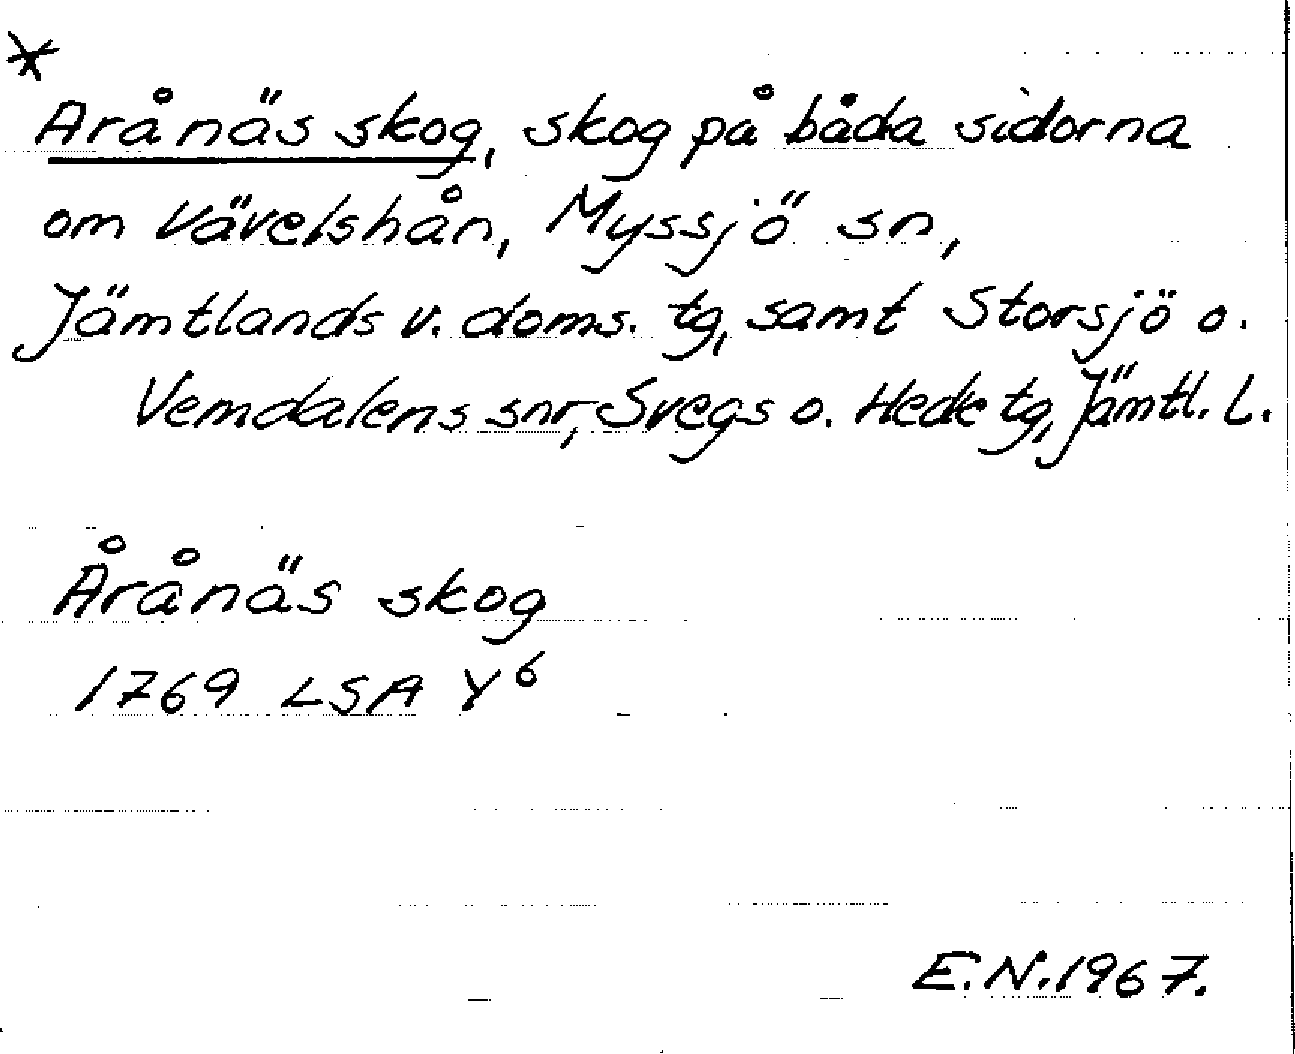 *
Arånäs skog, skog på båda sidorna
om Vävelshån, Myssjö sn,
Jämtlands v. doms. tg, samt Storsjö o.
Vemdalens snr, Svegs o. Hede tg, Jämtl. L.
Årånäs skog
1769 LSA Y6
E.N. 1967.